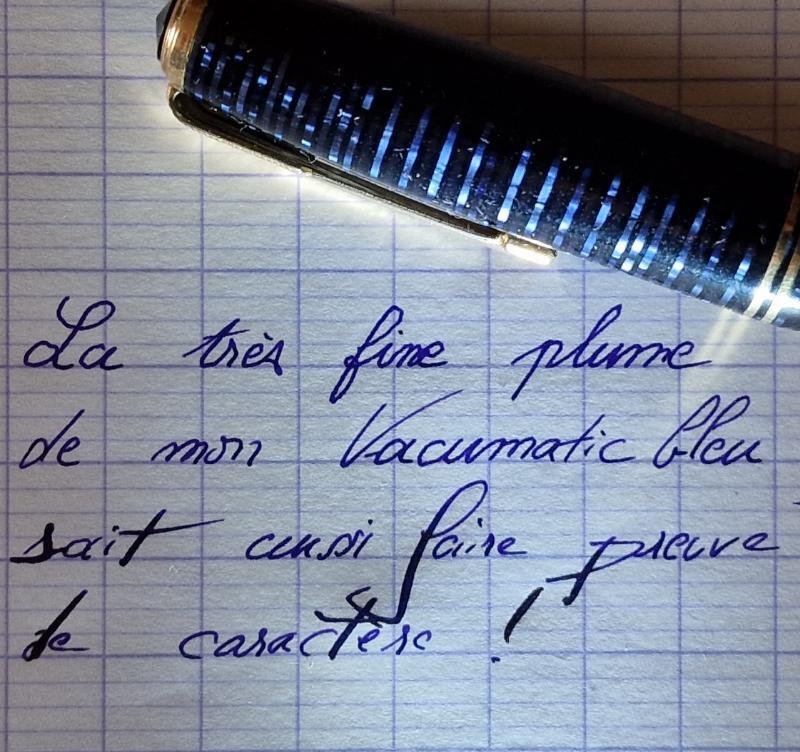 La très fine plume
de mon Vacumatic bleu
sait aussi faire preuve
de caractère !